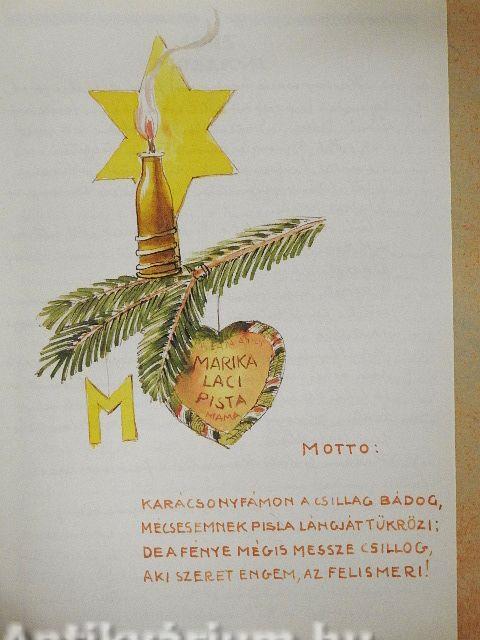 MARIKA
LACI
PISTA
MAMA
M
MOTTO:
KARÁCSONYFÁMON A CSILLAG BÁDOG,
MÉCSESEMNEK PISLA LÁNGJÁT TÜKRÖZI;
DE A FÉNYE MÉGIS MESSZE CSILLOG,
AKI SZERET ENGEM, AZ FELISMERI!
Antikvárium.hu